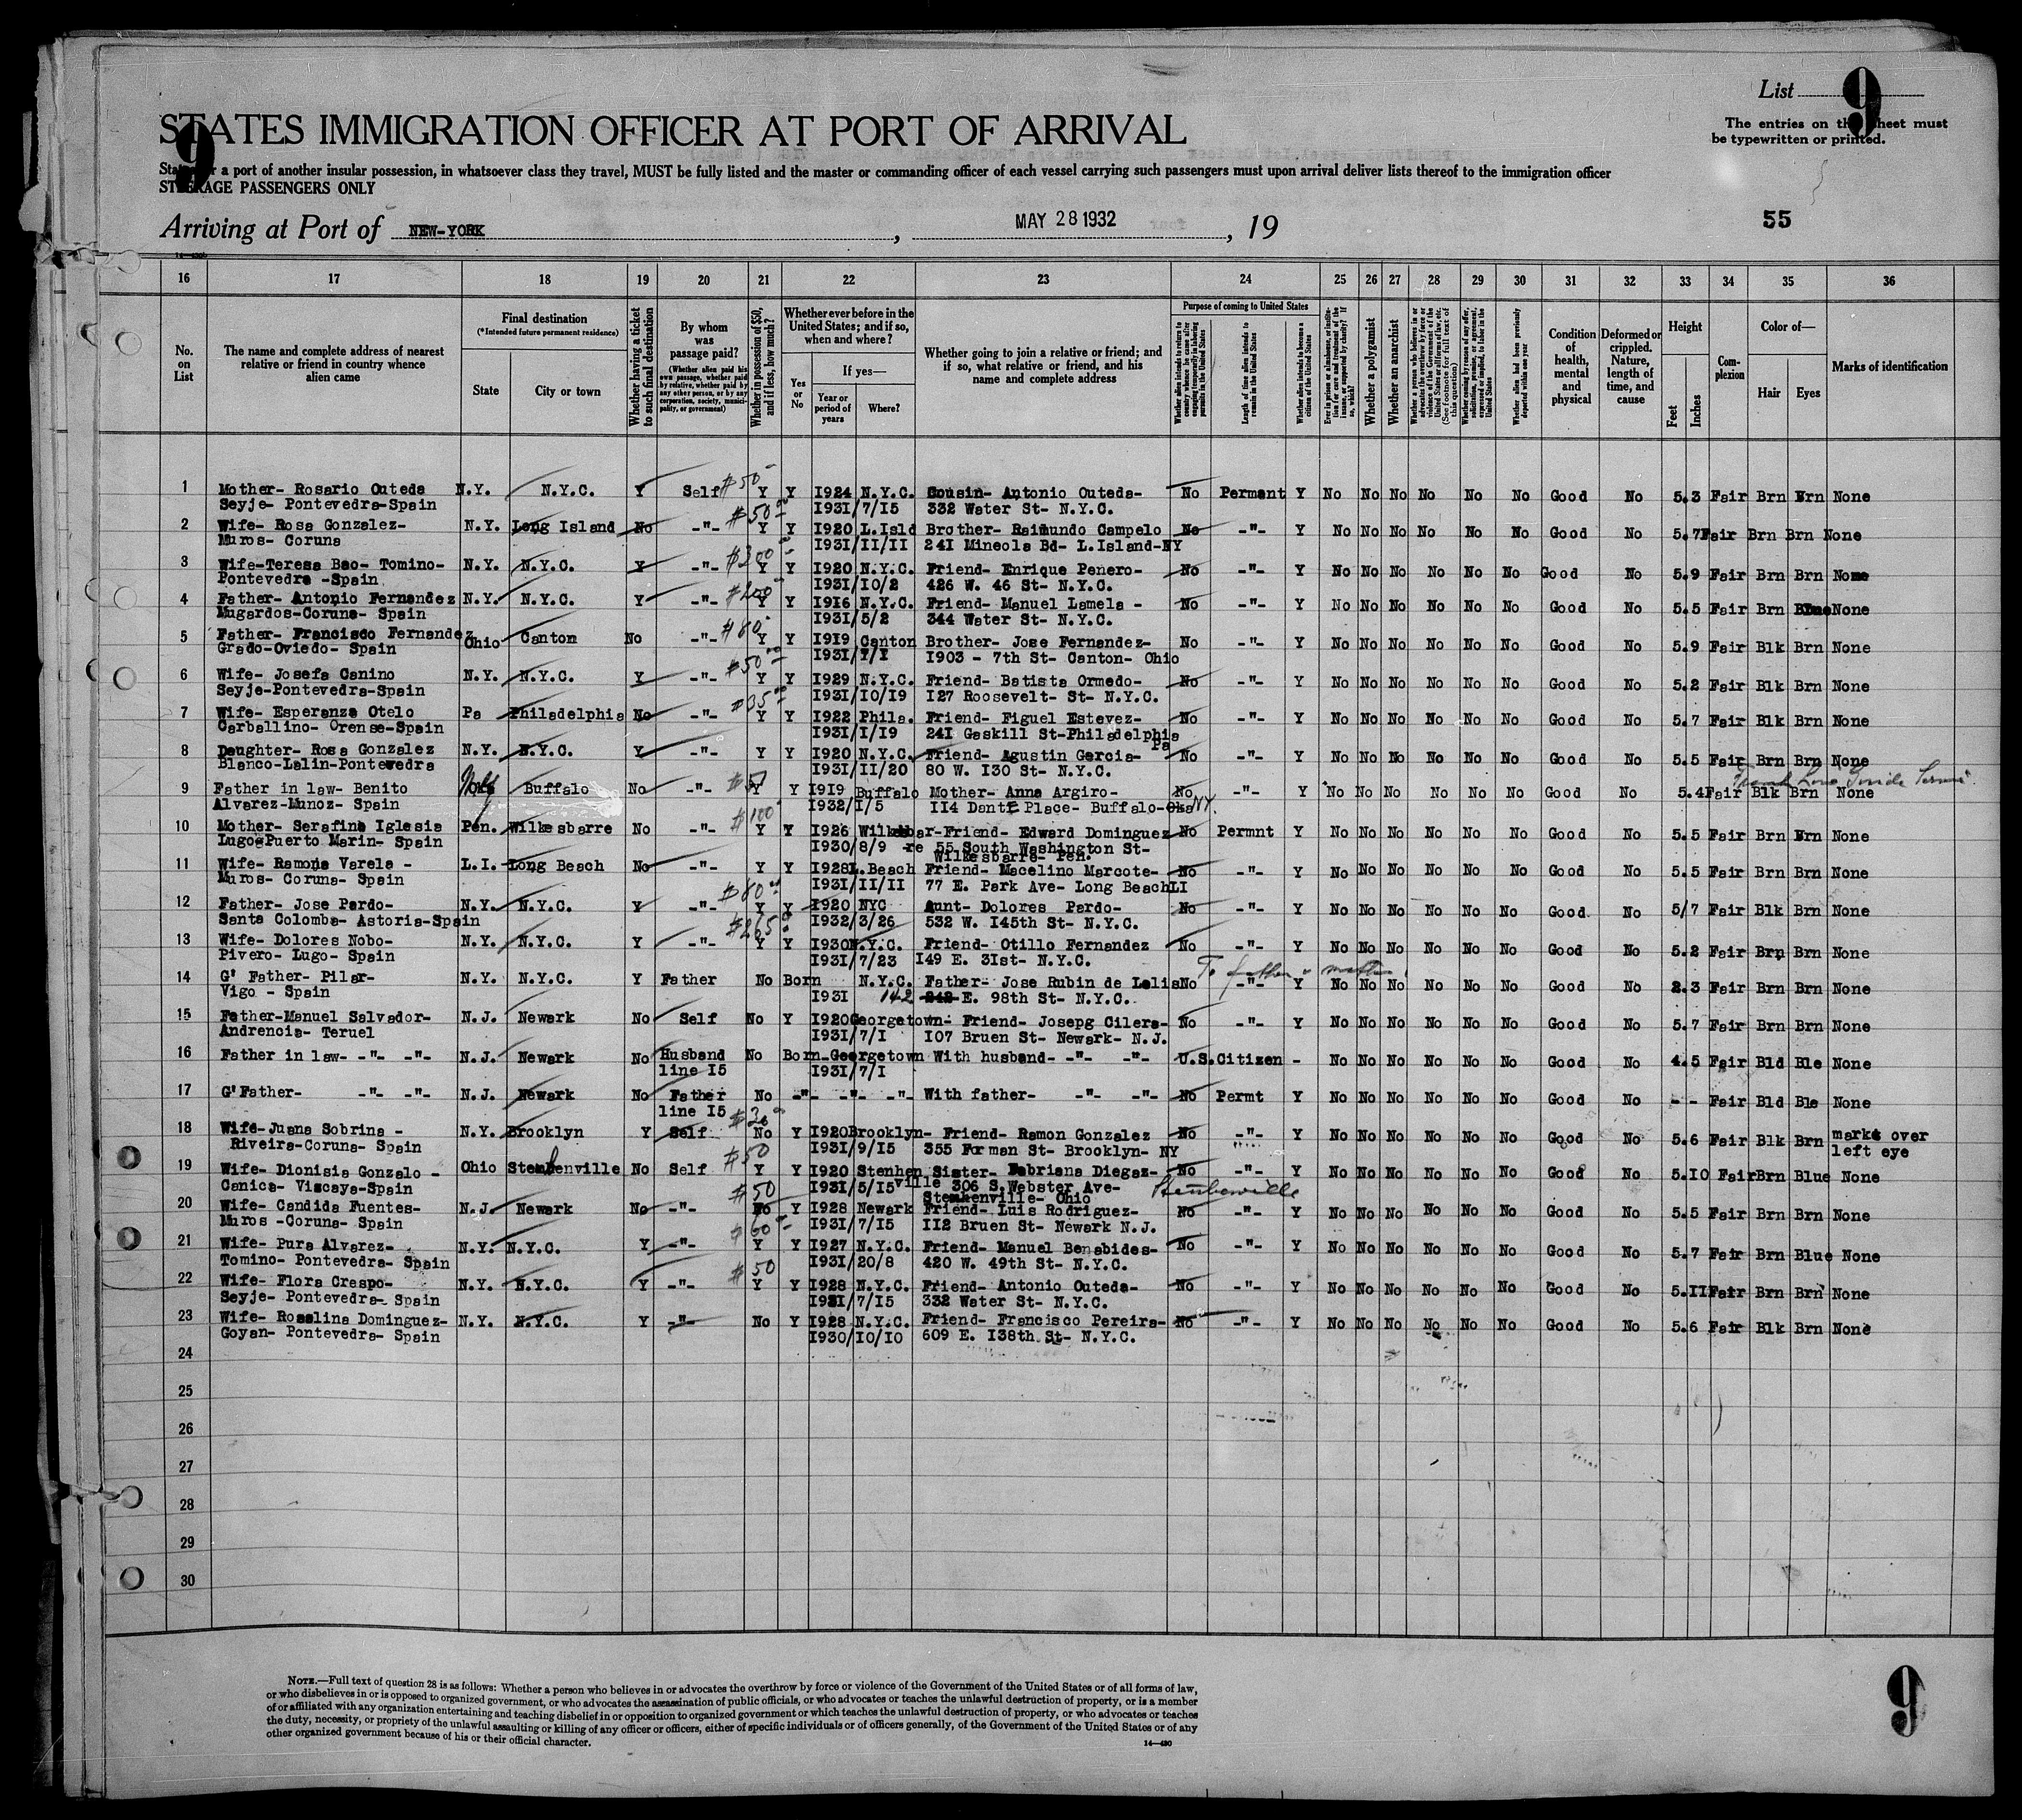 List 9
The entries on this sheet must
be typewritten or printed.
STATES IMMIGRATION OFFICER AT PORT OF ARRIVAL
9
a port of another insular possession, in whatsoever class they travel, MUST be fully listed and the master or commanding officer of each vessel carrying such passengers must upon arrival deliver lists thereof to the immigration officer
STEERAGE PASSENGERS ONLY
Arriving at Port of NEW-YORK, MAY 28 1932, 19
55
16 17 18 19 20 21 22 23 24 25 26 27 28 29 30 31 32 33 34 35 36
No. on List
The name and complete address of nearest relative or friend in country whence alien came
Final destination
(*Intended future permanent residence)
State
City or town
Whether having a ticket to such final destination
By whom was passage paid?
(Whether alien paid his own passage, whether paid by relative, whether paid by any other person, or by any corporation, society, municipality, or government)
Whether in possession of $50, and if less, how much?
Whether ever before in the United States; and if so, when and where?
Yes or No
If yes—
Year or period of years
Where?
Whether going to join a relative or friend; and if so, what relative or friend, and his name and complete address
Purpose of coming to United States
Whether alien intends to return to country whence he came after engaging temporarily in laboring pursuits in the United States
Length of time alien intends to remain in the United States
Whether alien intends to become a citizen of the United States
Whether a polygamist
Whether an anarchist
Whether alien had been previously deported within one year
Condition of health, mental and physical
Deformed or crippled. Nature, length of time, and cause
Height
Feet
Inches
Complexion
Color of—
Hair
Eyes
Marks of identification
1 Mother- Rosario Outeda N.Y. N.Y.C. Y Self $50 Y Y I924 N.Y.C. Cousin- Antonio Outeda- No Permant Y No No No No No No Good No 5.3 Fair Brn Brn None
Seyje- Pontevedra-Spain I93I/7/I5 332 Water St- N.Y.C.
2 Wife- Rosa Gonzalez- N.Y. Long Island No -"- $50 Y Y I920 L.Isld Brother- Raimundo Campelo No -"- Y No No No No No No Good No 5.7 Fair Brn Brn None
Muros- Coruna I93I/II/II 24I Mineola Bd- L.Island-NY
3 Wife-Teresa Bao- Tomino- N.Y. N.Y.C. Y -"- $300 Y Y I920 N.Y.C. Friend- Enrique Penero- No -"- Y No No No No No No Good No 5.9 Fair Brn Brn None
Pontevedra -Spain I93I/IO/2 426 W. 46 St- N.Y.C.
4 Father- Antonio Fernandez N.Y. N.Y.C. Y -"- $200 Y Y I9I6 N.Y.C. Friend- Manuel Lamela - No -"- Y No No No No No No Good No 5.5 Fair Brn Blue None
Mugardos-Coruna- Spain I93I/5/2 344 Water St- N.Y.C.
5 Father- Francisco Fernandez Ohio Canton No -"- $80 Y Y I9I9 Canton Brother- Jose Fernandez- No -"- Y No No No No No No Good No 5.9 Fair Blk Brn None
Grado-Oviedo- Spain I93I/7/I I903 - 7th St- Canton- Ohio
6 Wife- Josefa Canino N.Y. N.Y.C. Y -"- $50 Y Y I929 N.Y.C. Friend- Batista Ormedo- No -"- Y No No No No No No Good No 5.2 Fair Blk Brn None
Seyje-Pontevedra-Spain I93I/IO/I9 I27 Roosevelt- St- N.Y.C.
7 Wife- Esperanza Otelo Pa Philadelphia No -"- $35 Y Y I922 Phila. Friend- Figuel Estevez- No -"- Y No No No No No No Good No 5.7 Fair Blk Brn None
Carballino- Orense-Spain I93I/I/I9 24I Gaskill St-Philadelphia Pa
8 Daughter- Rosa Gonzalez N.Y. N.Y.C. Y -"- Y Y I920 N.Y.C. Friend- Agustin Garcia- No -"- Y No No No No No No Good No 5.5 Fair Brn Brn None
Blanco-Lalin-Pontevedra I93I/II/20 80 W. I30 St- N.Y.C.
9 Father in law- Benito Buffalo No -"- $51 Y Y I9I9 Buffalo Mother- Anna Argiro- No -"- Y No No No No No No Good No 5.4 Fair Blk Brn None
Alvarez-Munoz- Spain I932/I/5 II4 Dante Place- Buffalo- N.Y.
10 Mother- Serafina Iglesis Pen. Wilkesbarre No -"- $100 Y Y I926 Wilkesbar- Friend- Edward Dominguez No Permnt Y No No No No No No Good No 5.5 Fair Brn Brn None
Lugo-Puerto Marin- Spain I930/8/9 re 55 South Washington St-
Wilkesbarre- Pen.
11 Wife- Ramona Varela - L.I. Long Beach No -"- Y Y I928 L.Beach Friend- Macelino Marcote- No -"- Y No No No No No No Good No 5.5 Fair Brn Brn None
Muros- Coruna- Spain I93I/II/II 77 E. Park Ave- Long Beach LI
12 Father- Jose Pardo- N.Y. N.Y.C. Y -"- $80 Y Y I920 NYC Aunt- Dolores Pardo- No -"- Y No No No No No No Good No 5/7 Fair Blk Brn None
Santa Colomba- Astoria-Spain I932/3/26 532 W. I45th St- N.Y.C.
13 Wife- Dolores Nobo- N.Y. N.Y.C. Y -"- $265 Y Y I930 N.Y.C. Friend- Otillo Fernandez No -"- Y No No No No No No Good No 5.2 Fair Brn Brn None
Pivero- Lugo- Spain I93I/7/23 I49 E. 3Ist- N.Y.C.
To father & mother
14 G' Father- Pilar- N.Y. N.Y.C. Y Father No Born N.Y.C. Father- Jose Rubin de Lelis No -"- Y No No No No No No Good No 2.3 Fair Brn Brn None
Vigo - Spain I93I 142 242 E. 98th St- N.Y.C.
15 Father-Manuel Salvador- N.J. Newark No Self No Y I920 Georgetown- Friend- Josepg Cilera- No -"- Y No No No No No No Good No 5.7 Fair Brn Brn None
Andrencia- Teruel I93I/7/I I07 Bruen St- Newark- N.J.
16 Father in law- -"- -"- N.J. Newark No Husband No Born-Georgetown With husband- -"- -"- U.S.Citizen - No No No No No No Good No 4.5 Fair Bld Ble None
line I5 I93I/7/I
17 G'Father- -"- -"- N.J. Newark No Father No -"- -"- -"- With father- -"- -"- No Permt Y No No No No No No Good No - - Fair Bld Ble None
line I5
18 Wife-Juana Sobrina - N.Y. Brooklyn Y Self No Y I920 Brooklyn- Friend- Ramon Gonzalez No -"- Y No No No No No No Good No 5.6 Fair Blk Brn marks over
Riveira-Coruna- Spain I93I/9/I5 355 Forman St- Brooklyn- NY left eye
19 Wife- Dionisia Gonzalo - Ohio Steubenville No Self $50 Y Y I920 Stenhen Sister- Fabriana Diegaz- No -"- Y No No No No No No Good No 5.IO Fair Brn Blue None
Canica- Viscaya-Spain I93I/5/I5 ville 306 S.Webster Ave-
Stenhenville- Ohio Steubenville
20 Wife- Candida Fuentes- N.J. Newark No -"- $50 No Y I928 Newark Friend- Luis Rodriguez- No -"- Y No No No No No No Good No 5.5 Fair Brn Brn None
Muros -Coruna- Spain I93I/7/I5 II2 Bruen St- Newark N.J.
21 Wife- Pura Alvarez- N.Y. N.Y.C. Y -"- $60 Y Y I927 N.Y.C. Friend- Manuel Benabides- No -"- Y No No No No No No Good No 5.7 Fair Brn Blue None
Tomino- Pontevedra- Spain I93I/20/8 420 W. 49th St- N.Y.C.
22 Wife- Flora Crespo- N.Y. N.Y.C. Y -"- $50 Y Y I928 N.Y.C. Friend- Antonio Outeda- No -"- Y No No No No No No Good No 5.II Fair Brn Brn None
Seyje- Pontevedra- Spain I93I/7/I5 332 Water St- N.Y.C.
23 Wife- Rosalina Dominguez- N.Y. N.Y.C. Y -"- No Y I928 N.Y.C. Friend- Francisco Pereira- No -"- Y No No No No No No Good No 5.6 Fair Blk Brn None
Goyan- Pontevedra- Spain I930/IO/IO 609 E. I38th St- N.Y.C.
24
25
26
27
28
29
30
NOTE.—Full text of question 28 is as follows: Whether a person who believes in or advocates the overthrow by force or violence of the Government of the United States or of all forms of law,
or who disbelieves in or is opposed to organized government, or who advocates the assassination of public officials, or who advocates or teaches the unlawful destruction of property, or is a member
of or affiliated with any organization entertaining and teaching disbelief in or opposition to organized government or which teaches the unlawful destruction of property, or who advocates or teaches
the duty, necessity, or propriety of the unlawful assaulting or killing of any officer or officers, either of specific individuals or of officers generally, of the Government of the United States or of any
other organized government because of his or their official character.
14—430
9